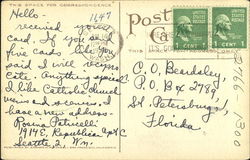 THIS SPACE FOR CORRESPONDENCE
1647
Hello -
received your
card. If you send
five cards like you
said I will recipro
cate. Anything special?
I like Catholic church
views and scenes. I
have a new address.
Rosina Paticelli
1914 E. Republican
Seattle, 2, Wn.
Post
Card
1 CENT 1
1 CENT 1
C. O. Beardsley
P. O. Bx 2788
St. Petersburg
Florida